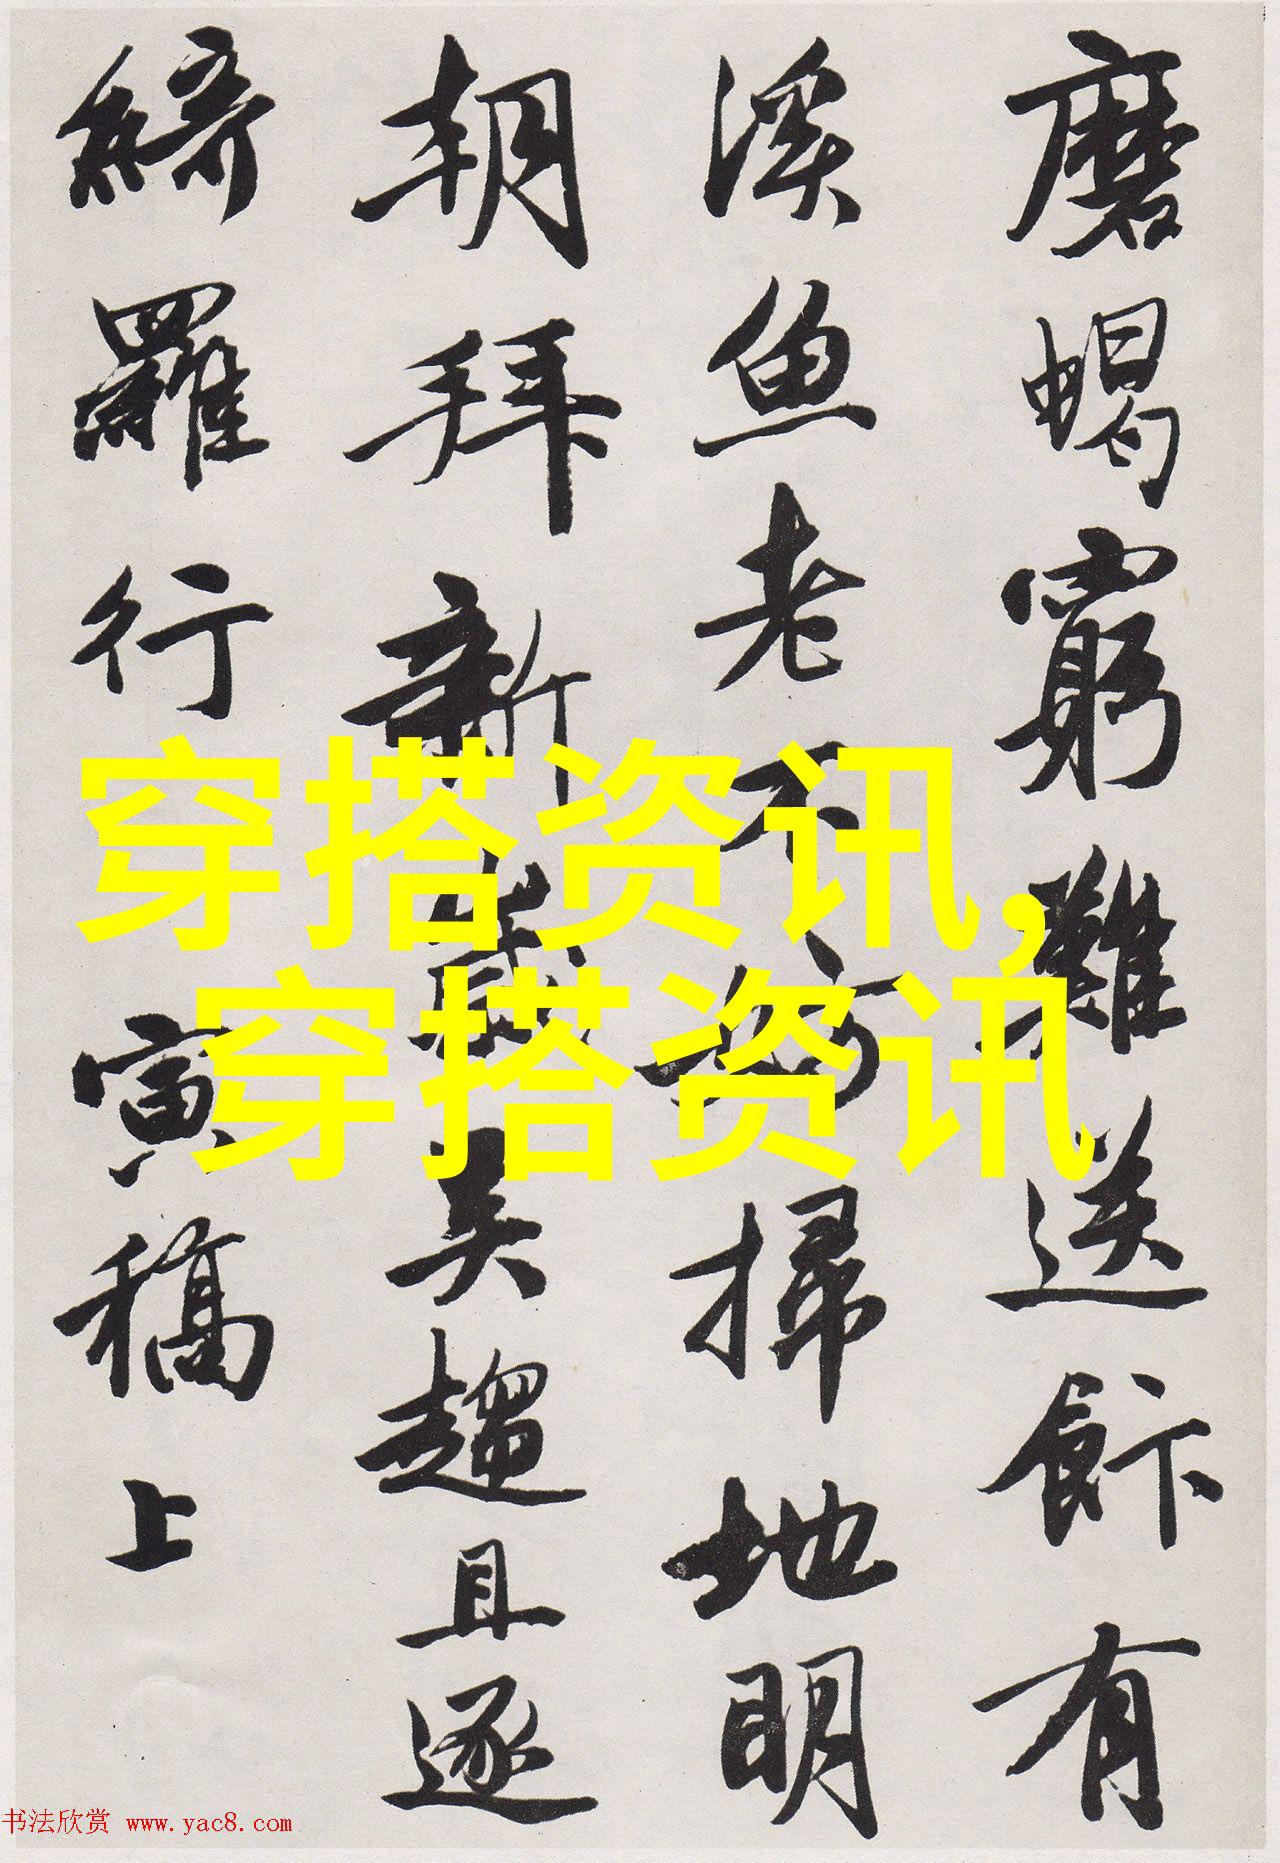 磨蝎窮難送飰有
溪魚老不妨掃地明
朝拜新歲吳趨且逐
綺羅行 寅稿上
穿搭资讯,
穿搭资讯
书法欣赏 www.yac8.com